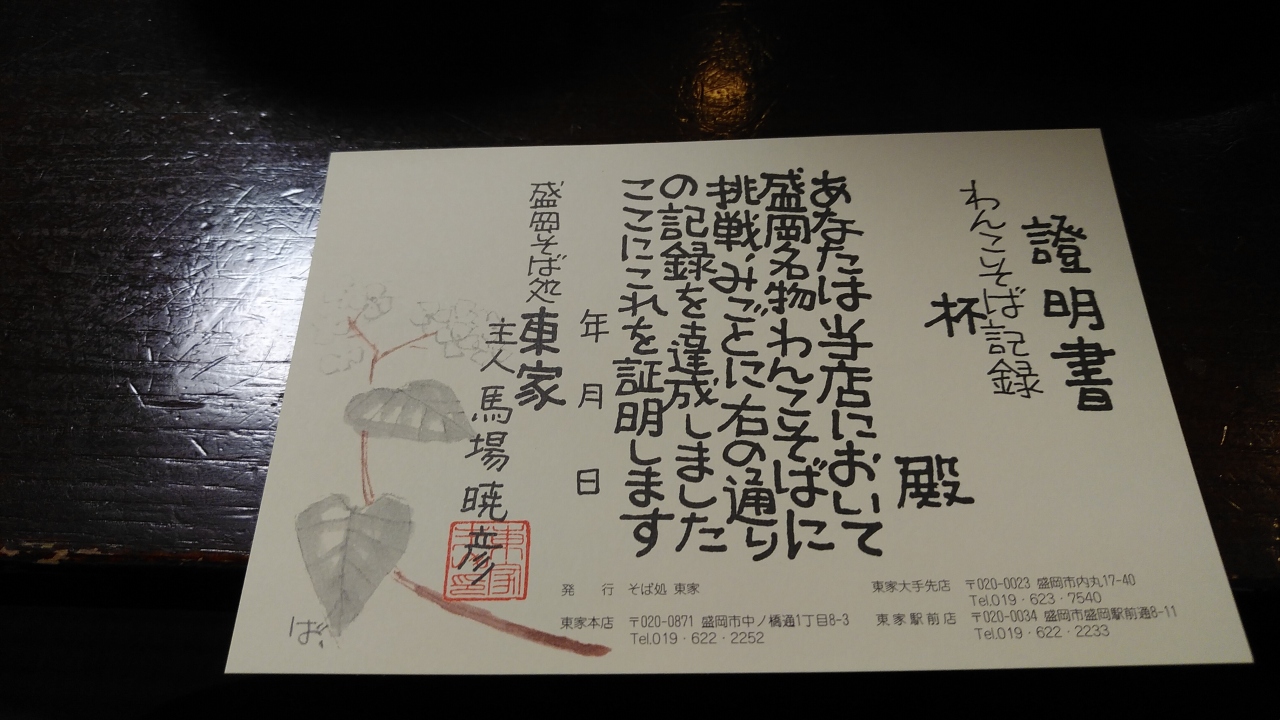 證明書
わんこそば記録
杯
殿
あなたは当店において
盛岡名物わんこそばに
挑戦、みごとに右の通り
の記録を達成しました
ここにこれを証明します
年 月 日
盛岡そば処 東家
主人 馬場 暁彦
ば
発 行 そば処 東家
東家本店 〒020-0871 盛岡市中ノ橋通1丁目8-3
Tel.019・622・2252
東家大手先店 〒020-0023 盛岡市内丸17-40
Tel.019・623・7540
東家駅前店 〒020-0034 盛岡市盛岡駅前通8-11
Tel.019・622・2233